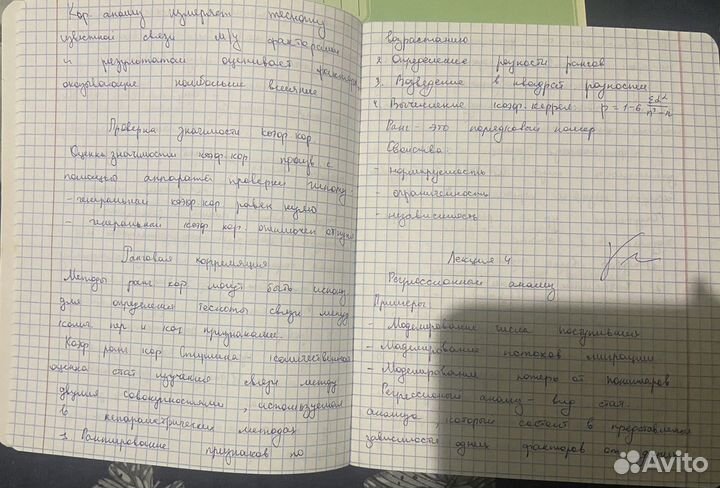 Кор. анализ измеряет тесноту
известной связи м/у факторами
и результатом оценивает факторы,
оказывающие наибольшее влияние
Проверка значимости коэф. кор.
Оценка значимости коэф. кор. произв с
помощью аппарата проверки гипотез:
- генеральный коэф. кор. равен нулю
- генеральный коэф. кор. отличен от нуля
Ранговая корреляция
Методы ранг кор могут быть использ
для определения тесноты связи между
колич пр и кач признаками.
Коэф ранг кор Спирмена - количественная
оценка стат изучения связи между
двумя совокупностями, используемая
в непараметрических методах
1. Ранжирование признаков по
возрастанию
2. Определение разности рангов
3. Возведение в квадрат разностей
4. Вычисление коэф. коррел. p = 1 - 6 Σd²/n³-n
Ранг - это порядковый номер
Свойства:
- нормируемость
- ограниченность
- независимость
Лекция 4
Регрессионный анализ
Примеры
- Моделирование числа поступивших
- Моделирование потоков миграции
- Моделирование потерь от пожаров
Регрессионный анализ - вид стат.
анализа, который состоит в представлении
зависимости одних факторов от других
Avito